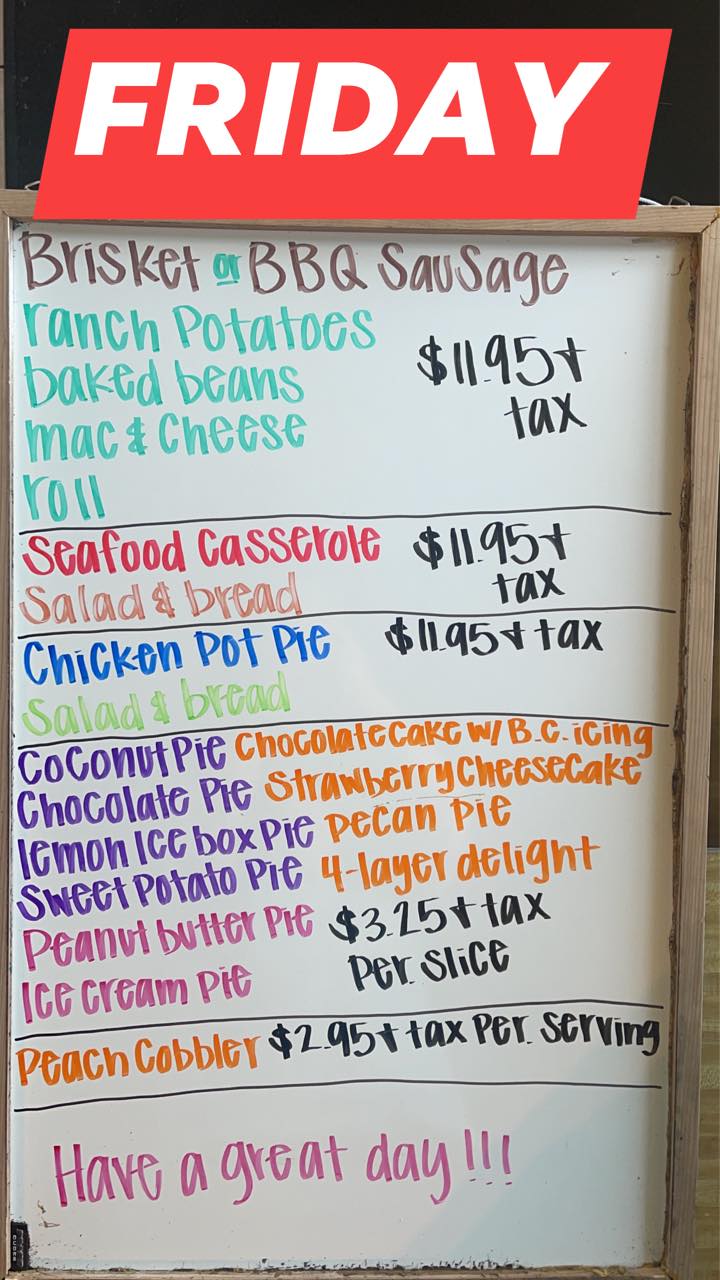 FRIDAY
Brisket or BBQ Sausage
ranch Potatoes
baked beans
mac & Cheese
roll
$11.95+
tax
Seafood Casserole $11.95+
tax
Salad & bread
Chicken Pot Pie $11.95+ tax
Salad & bread
Coconut Pie Chocolate Cake w/ B.C. icing
Chocolate Pie Strawberry Cheesecake
lemon Ice box Pie Pecan Pie
Sweet Potato Pie 4-layer delight
Peanut butter Pie $3.25+ tax
Ice cream Pie Per. Slice
Peach Cobbler $2.95+ tax Per. Serving
Have a great day!!!